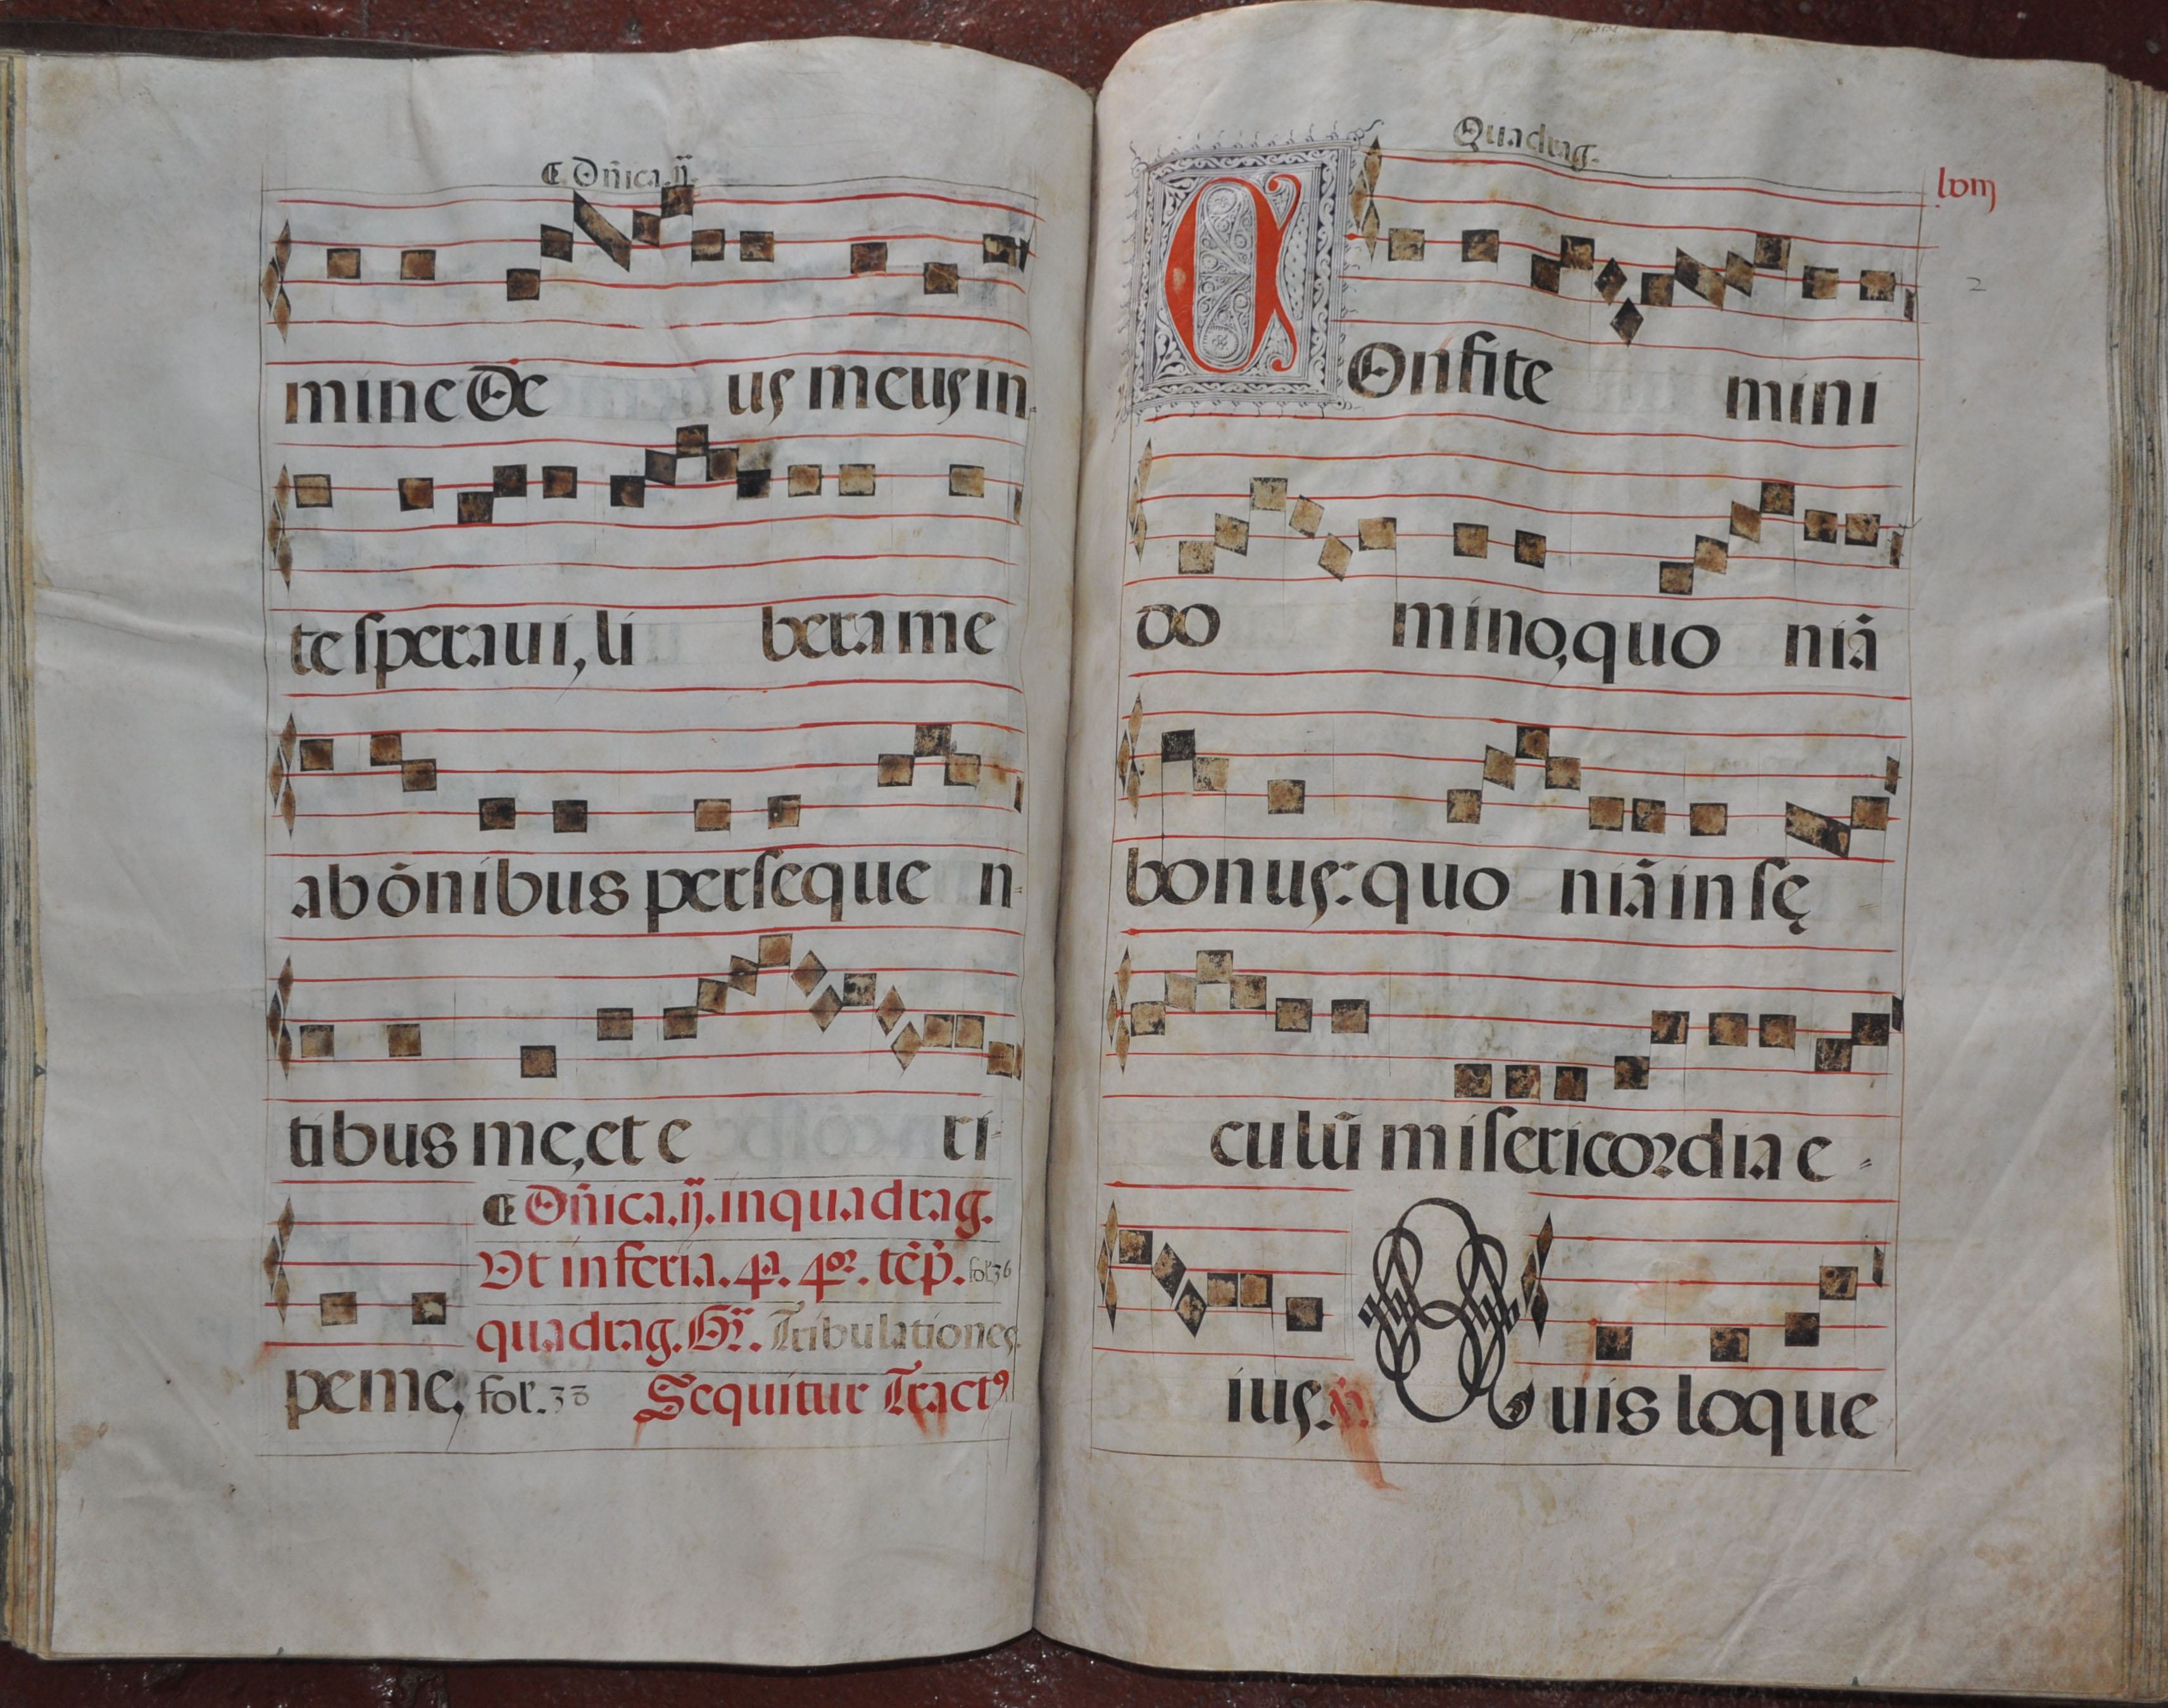 ¶ Dñica.ij.
mine De us meus in
te speraui, li bera me
ab õnibus perseque n-
tibus me, et e ri-
¶ Dñica.ij. in quadrag.
Vt in feria. 4ª. 4or. tẽp̃. fol. 36
quadrag. Gr̃. Tribulationes.
pe me, fol. 38 Sequitur Tract⁹
Quadrag.
lviij
2
COnfite mini
do mino, quo niã
bonus: quo niã in sę
culũ misericordia e-
ius. ℣. Quis loque